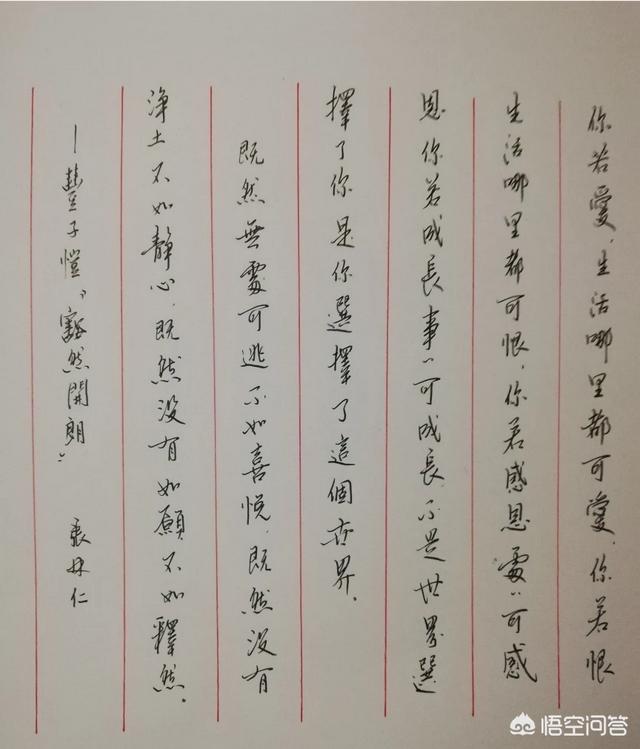 你若愛,生活哪里都可愛,你若恨
生活哪里都可恨,你若感恩處〃可感
恩你若成長事〃可成長不是世界選
擇了你是你選擇了這個世界.
既然無處可逃不如喜悦,既然没有
淨土不如靜心,既然没有如願不如釋然.
—豐子愷"豁然開朗"
張林仁
悟空问答